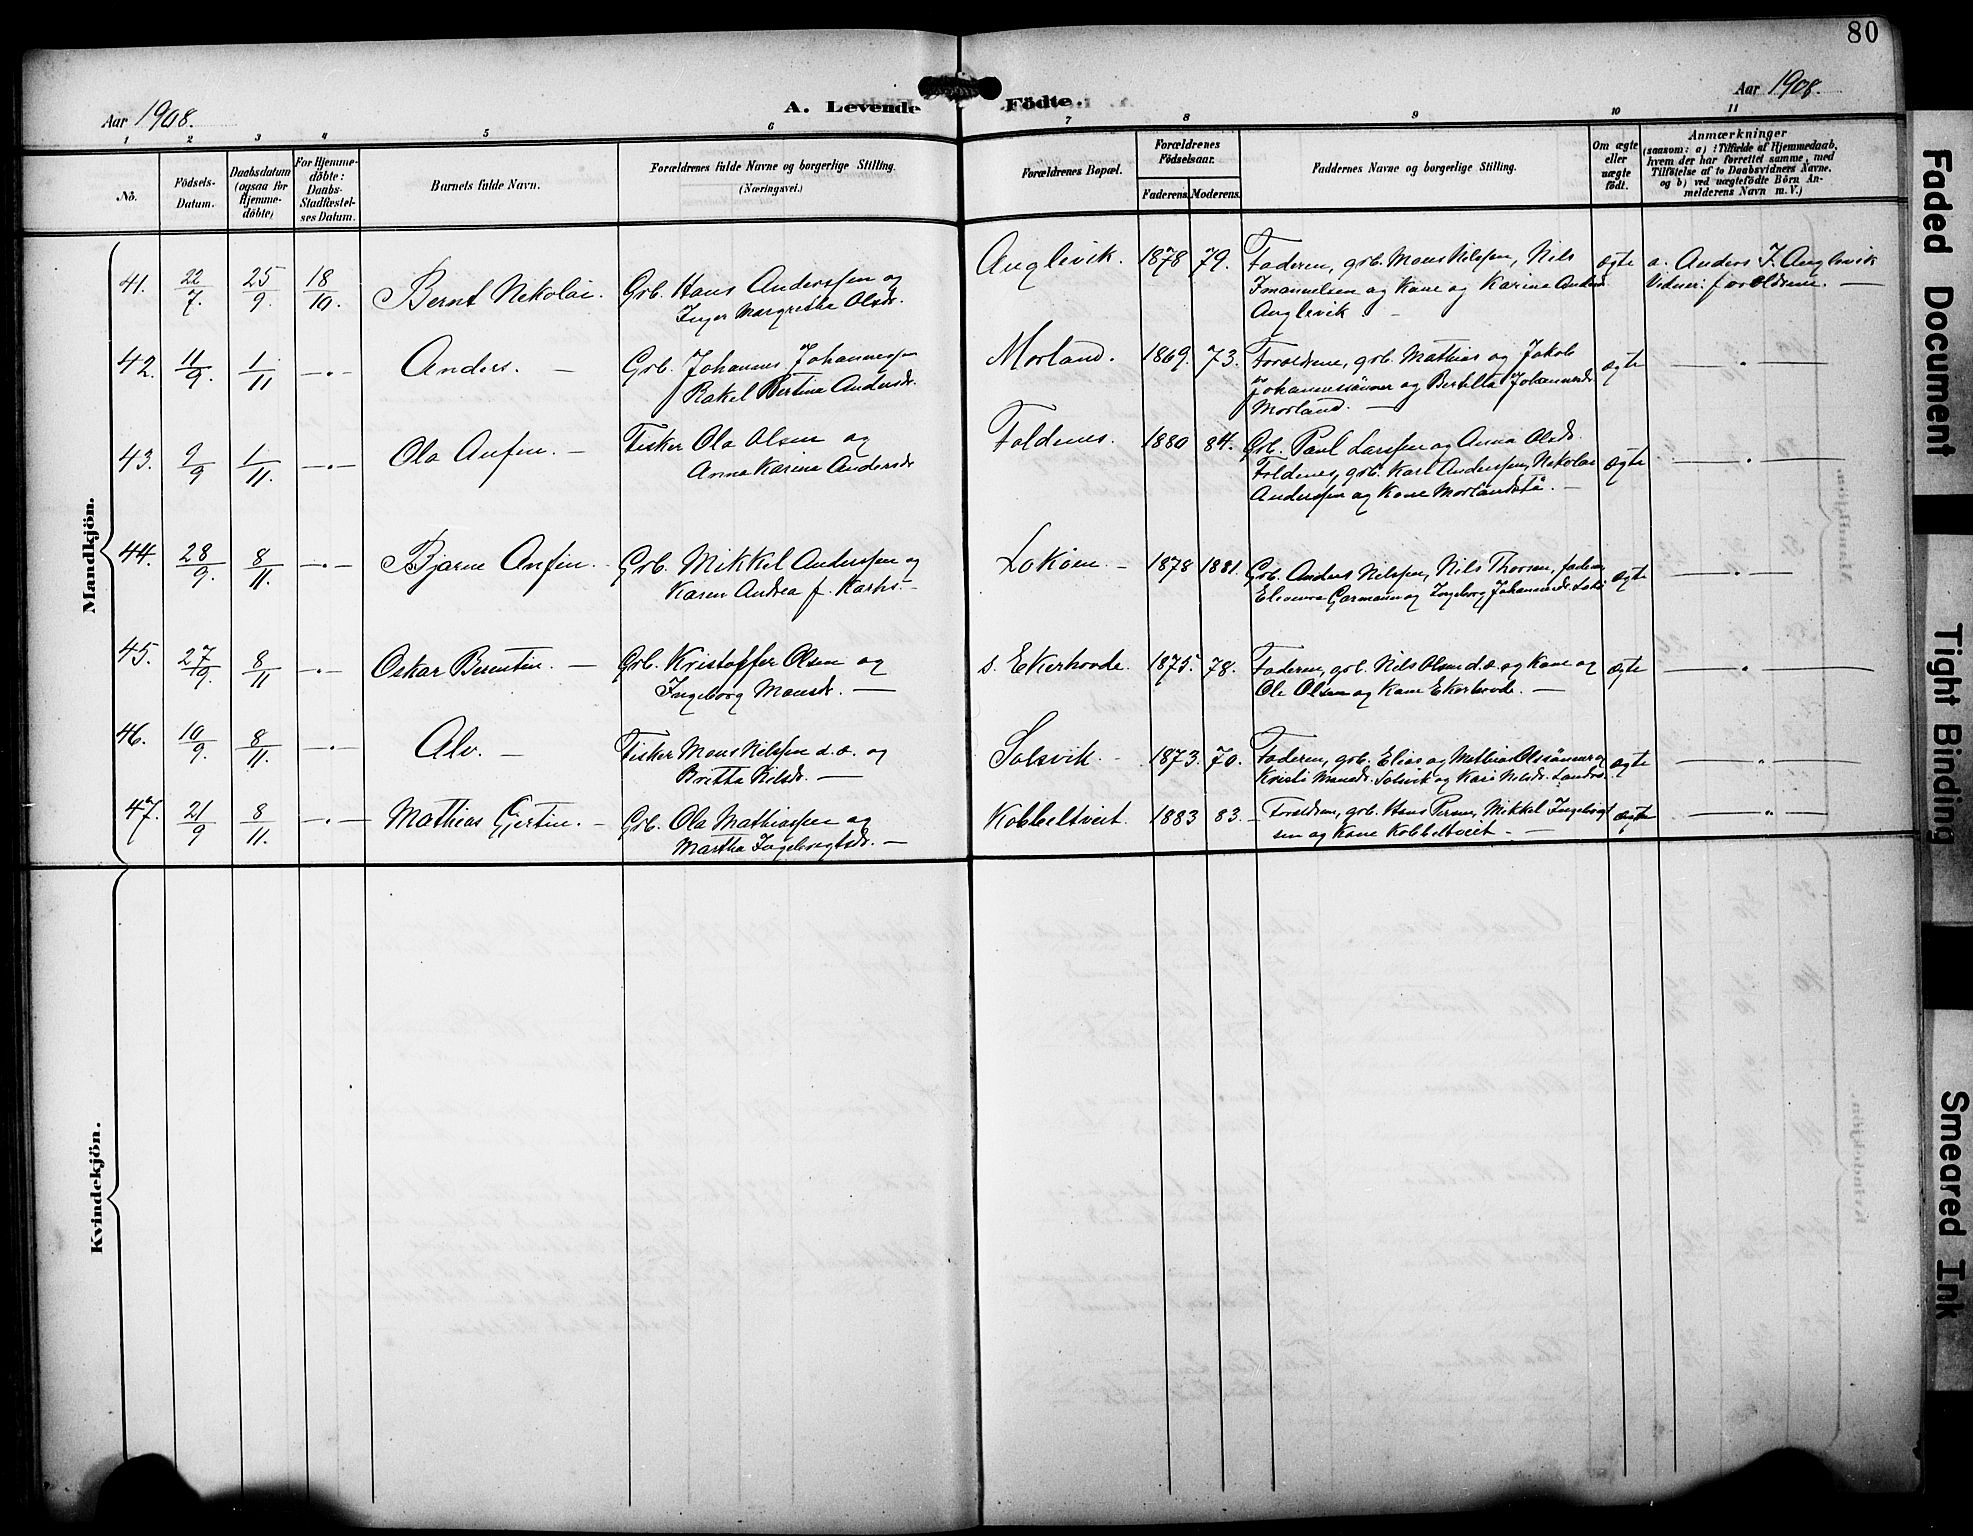 80
Aar 1908.
A. Levende Födte.
Aar 1908.
1 2 3 4 5 6 7 8 9 10 11
No.
Födsels-Datum.
Daabsdatum (ogsaa för Hjemme-döbte)
For Hjemme-döbte: Daabs-Stadfæstel-ses Datum.
Barnets fulde Navn.
Forældrenes fulde Navne og borgerlige Stilling.
(Næringsvei.)
Forældrenes Bopæl.
Forældrenes Födselsaar.
Faderens. Moderens.
Faddernes Navne og borgerlige Stilling.
Om ægte eller uægte födt.
Anmærkninger
(saasom: a) i Tilfælde af Hjemmedaab,
hvem der har forrettet samme, med
Tilföielse af to Daabsvidners Navne.
og b) ved uægtefödte Börn An-
melderens Navn m. V.)
Mandkjön.
41. 22/7. 25/9. 18/10. Bernt Nikolai. Grb. Hans Anderssen og
Inger Margrethe Olsdr.
Anglevik. 1878 79. Faderen, grb. Mons Nilssen, Nils
Imanuelsen og Kone og Karina Andersd.
Anglevik.
ægte a. Anders J. Anglevik
Vidner: forældrene. —
42. 11/9. 1/11 —"— Anders. — Grb. Johannes Johannessen
Rakel Bertine Andersdr.
Morland. 1869. 73. Forældrene, grb. Mathias og Jakob
Johannessönner og Bertilla Johannesdr.
Morland. —
ægte —"—
43. 9/9 1/11. —"— Ola Anfin. — Fisker Ola Olsen og
Anna Karina Andersdr
Foldenes. 1880 84. Grb. Paul Larssen og Anna Olsdr.
Foldenes, grb. Karl Anderssen, Nikolai
Anderssen og Kone Morlandstö. —
ægte —"—
44. 28/9. 8/11. —"— Bjarne Anfin. — Grb. Mikkel Anderssen og
Karen Andrea f.
Loköen. — 1878 1881. Grb. Anders Nilssen, Nils Thorsen, faderen,
Elevine Garmann og Ingeborg Johannesdr.
ægte —"—
45. 27/9. 8/11 —"— Oskar Berentin. — Grb. Kristoffer Olsen og
Ingeborg Monsdr. —
s. Ekerhovde. 1875. 78. Faderen, grb. Nils Olsen d.æ. og Kone og
Ole Olsen og Kone Ekerhovde. —
ægte —"—
46. 10/9. 8/11. —"— Alv. — Fisker Mons Nilssen d.æ. og
Britta Nilsdr. —
Solsvik. — 1873. 70. Faderen, grb. Elias og Mathias Olssönner og
Kristi Monsdr. Solsvik og Kari Nilsdr. Landro
ægte —"—
47. 21/9 8/11. —"— Mathias Gjertin. — Grb. Ola Mathiassen og
Martha Ingebrigtsdr. —
Kobbeltveit. 1883 83. — Forældrene, grb. Hans Persen, Mikkel Ingebrigt
sen og Kone Kobbeltveit. —
ægte —"—
Kvindekjön.
Faded Document
Tight Binding
Smeared Ink